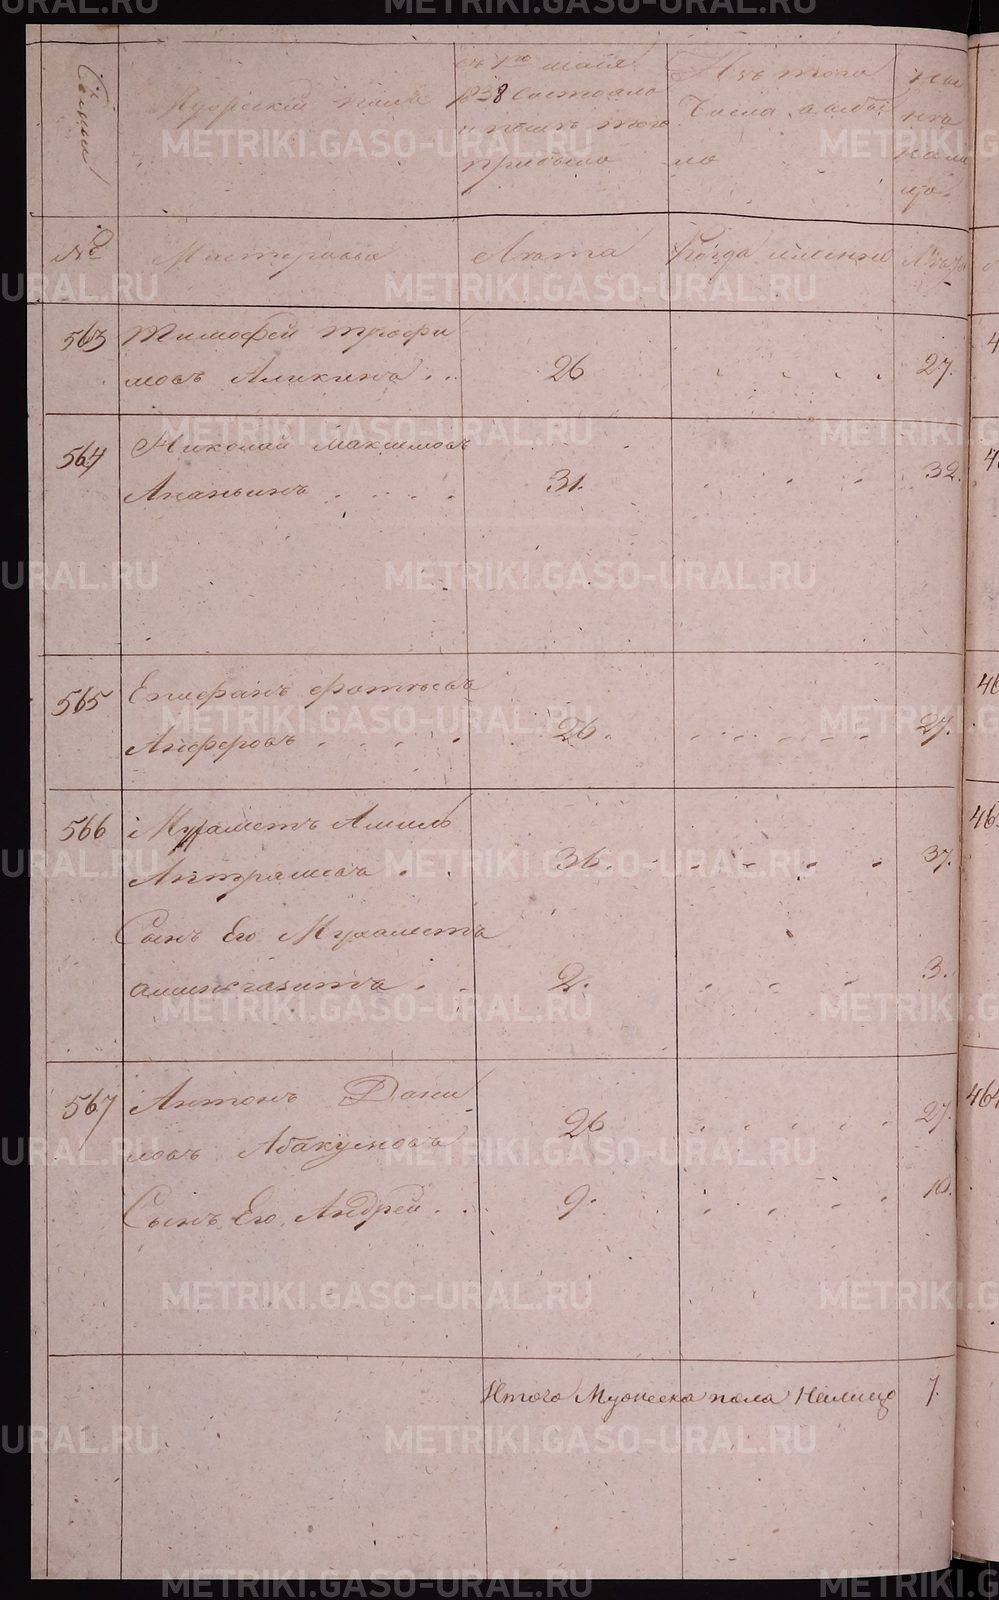 METRIKI.GASO-URAL.RU
Семьи
Мужескій полъ
съ 1го маія
1838 Состояло
и послѣ того
прибыло
Изъ того
Числа выбы
ло
На
лица
№
Мастеровые
Лѣта
Когда именно
Лѣта
563 Тимофей Трофи
мовъ Аликинъ . . 26 27.
564 Николай Максимовъ
Ананьинъ . . . . 31. 32.
565 Епифанъ Фотіевъ
Анферовъ . . . . 26. 27.
566 Мухаметъ Аминь
36. 37.
Сынъ Его Мухаметъ
2. 3.
567 Антонъ Дани
ловъ Абакумовъ 26 27.
Сынъ Его Андрей . . 9. 10.
Итого Мужеска пола Налицо 7.